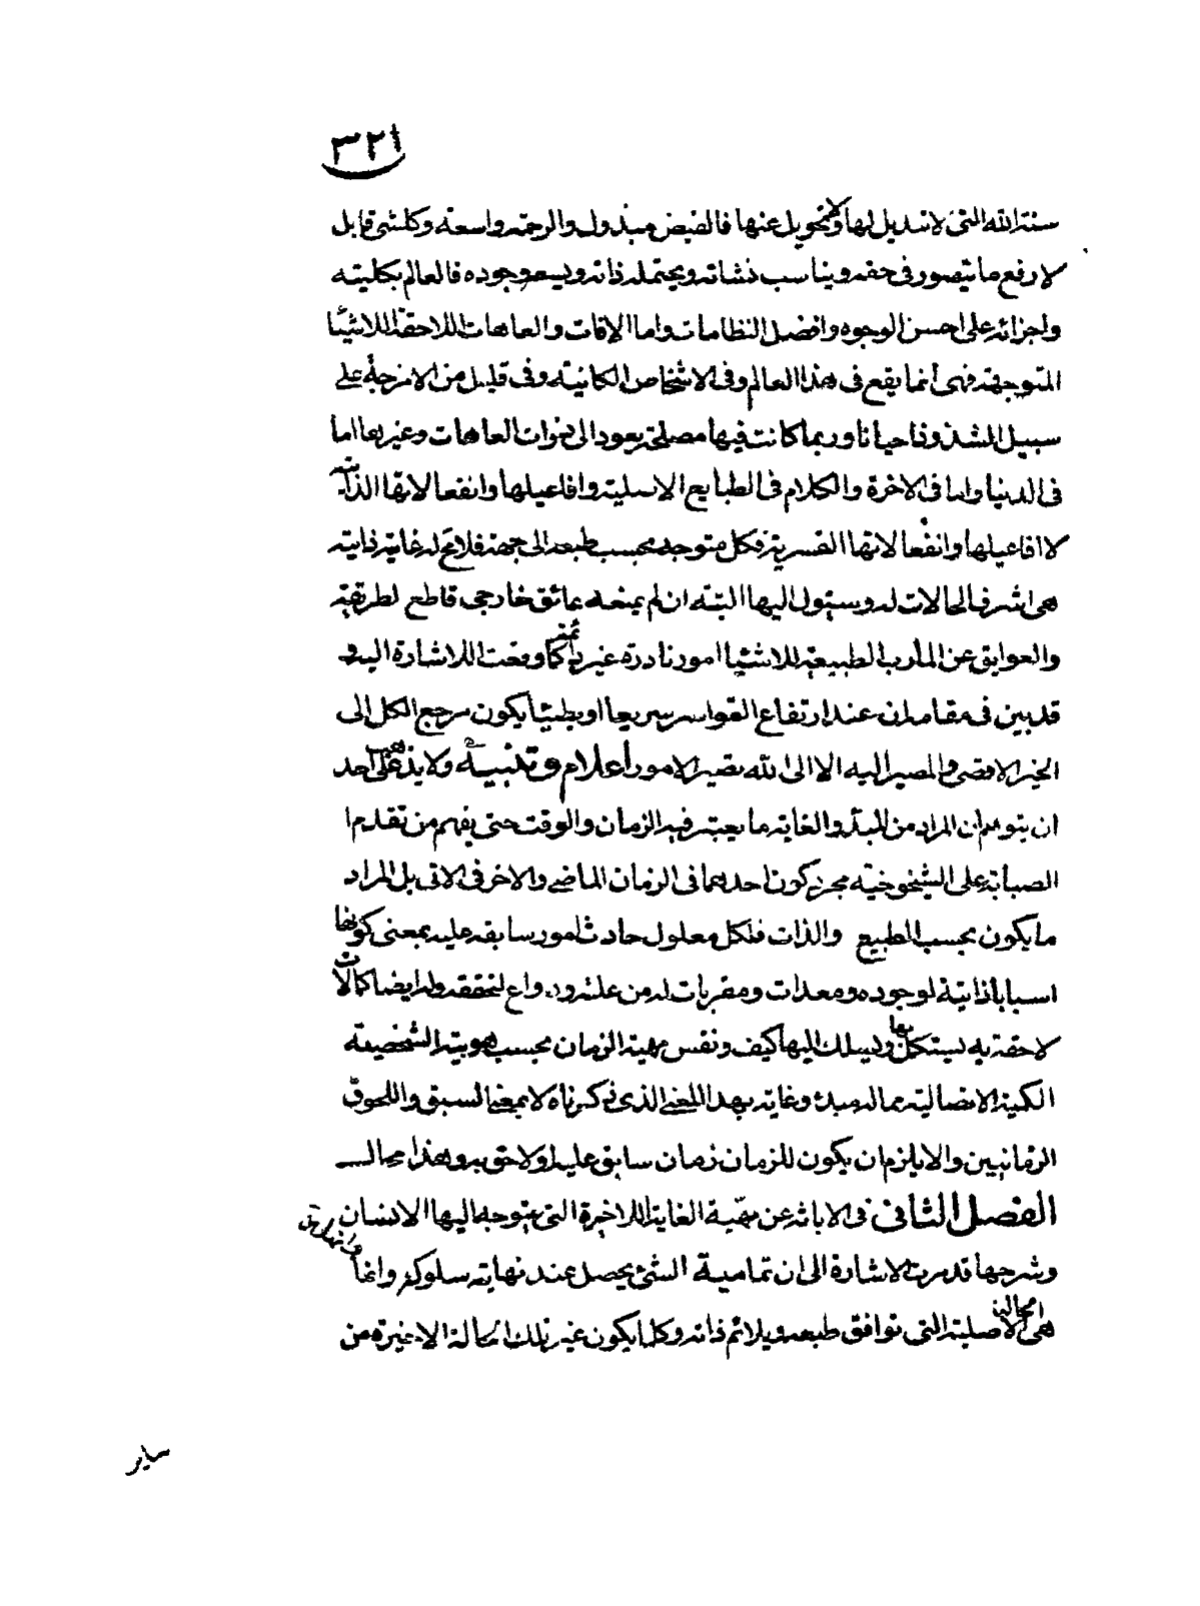 ٣٢١
سنة الله التى لا تبديل لها ولا تحويل عنها فالفيض مبذول والرحمة واسعة وكلشئ قابل
لارفع ما يتصور فى حقه ويناسب نشاته ويحتمله ذاته ويسعه وجوده فالعالم بكليته
واجزائه على احسن الوجوه وافضل النظامات واما الافات والعاهات اللاحقة للاشيا
المتوجهة فهى انما يقع فى هذا العالم وفى الاشخاص الكائنة وفى قليل من الامزجة على
سبيل الشذوذ احيانا وربما كانت فيها مصلحة يعود الى ذوات العاهات وغيرها اما
فى الدنيا واما فى الاخرة والكلام فى الطبايع الاصلية وافاعيلها وانفعالاتها الذاتية
لا افاعيلها وانفعالاتها القسرية فكل متوجه بحسب طبعه الى جهة فلا مح له غاية ذاتية
هى اشرف الحالات له وسيؤل اليها البتة ان لم يمنعه عائق خارجى قاطع لطريقته
والعوايق عن المآرب الطبيعية للاشيا امور نادرة غير دائمة كما وقعت اللاشارة اليه و
قد بين فى مقامه ان عند ارتفاع القواسر سريعا او بطيئا يكون مرجع الكل الى
الخير الاقصى والمصير اليه الا الى الله تصير الامور اعلام وتنبيه ولا يذهبن على احد
ان يتوهم ان المراد من المبدء والغاية ما يعتبر فيه الزمان والوقت حتى يفهم من تقدم
الصبابة على الشيخوخية مجرد كون احدهما فى الزمان الماضى والاخر فى الاتى بل المراد
ما يكون بحسب الطبيع والذات فلكل معلول حادث امور سابقة عليه بمعنى كونها
اسبابا ذاتية لوجوده ومعدات ومقربات له من علته ودواع لتحققه وله ايضا كمالات
لاحقة به ليستكمل بها وليسلك اليها كيف ونفس مهية الزمان بحسب هويته الشخصية
الكمية الاتصالية مما له مبدء وغاية بهذا المعنى الذى ذكرناه لا بمعنى السبق واللحوق
الزمانيين والا يلزم ان يكون للزمان زمان سابق عليه او لاحق به وهذا محال
الفصل الثانى فى الاباثة عن مهية الغاية للاخيرة التى يتوجه اليها الانسان
وشرحها قد مرت الاشارة الى ان تمامية الشئ يحصل عند نهاية سلوكه وانها
هى الحالة الاصلية التى توافق طبعه ويلائم ذاته وكلما يكون غير تلك الحالة الاخيرة من
ساير